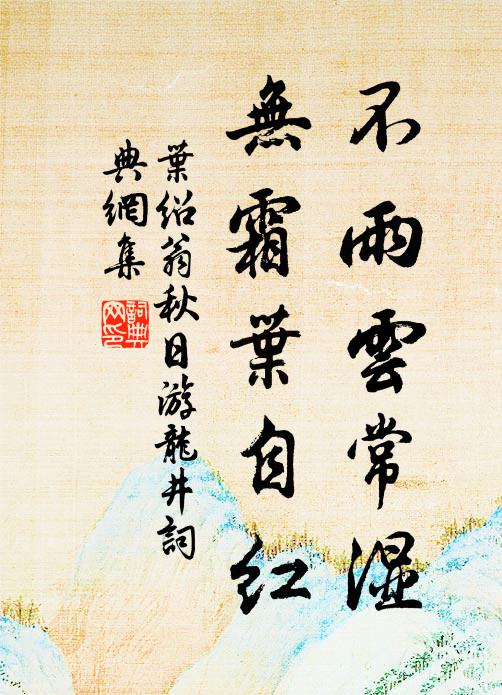 不雨雲常湿
無霜葉自紅
葉绍翁秋日游龍井詞
典網集
詞典
网印